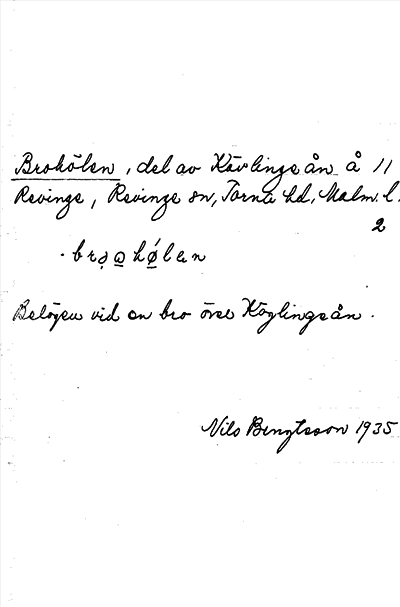 Brohölen, del av Kävlingeån å 11
Revinge, Revinge sn, Torna hd, Malm. l.
2
. brọo̲ hǿ̲len
Belägen vid en bro över Kävlingeån.
Nils Bengtsson 1935